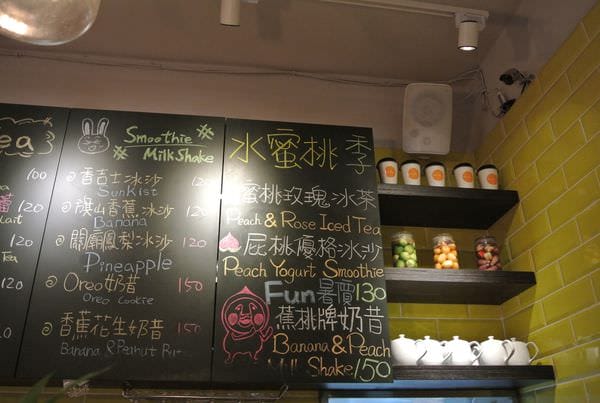 ea
100
120
Lait
Tea
120
120
Smoothie
MilkShake
香吉士冰沙 120
SunKist
旗山香蕉冰沙 120
Banana
關廟鳳梨冰沙 120
Pineapple
Oreo奶昔 150
Oreo Cookie
香蕉花生奶昔 150
Banana & Peanut
水蜜桃季
蜜桃玫瑰冰茶
Peach & Rose Iced Tea
屁桃優格冰沙
Peach Yogurt Smoothie
Fun暑價130
蕉桃牌奶昔
Banana & Peach
Milk Shake 150